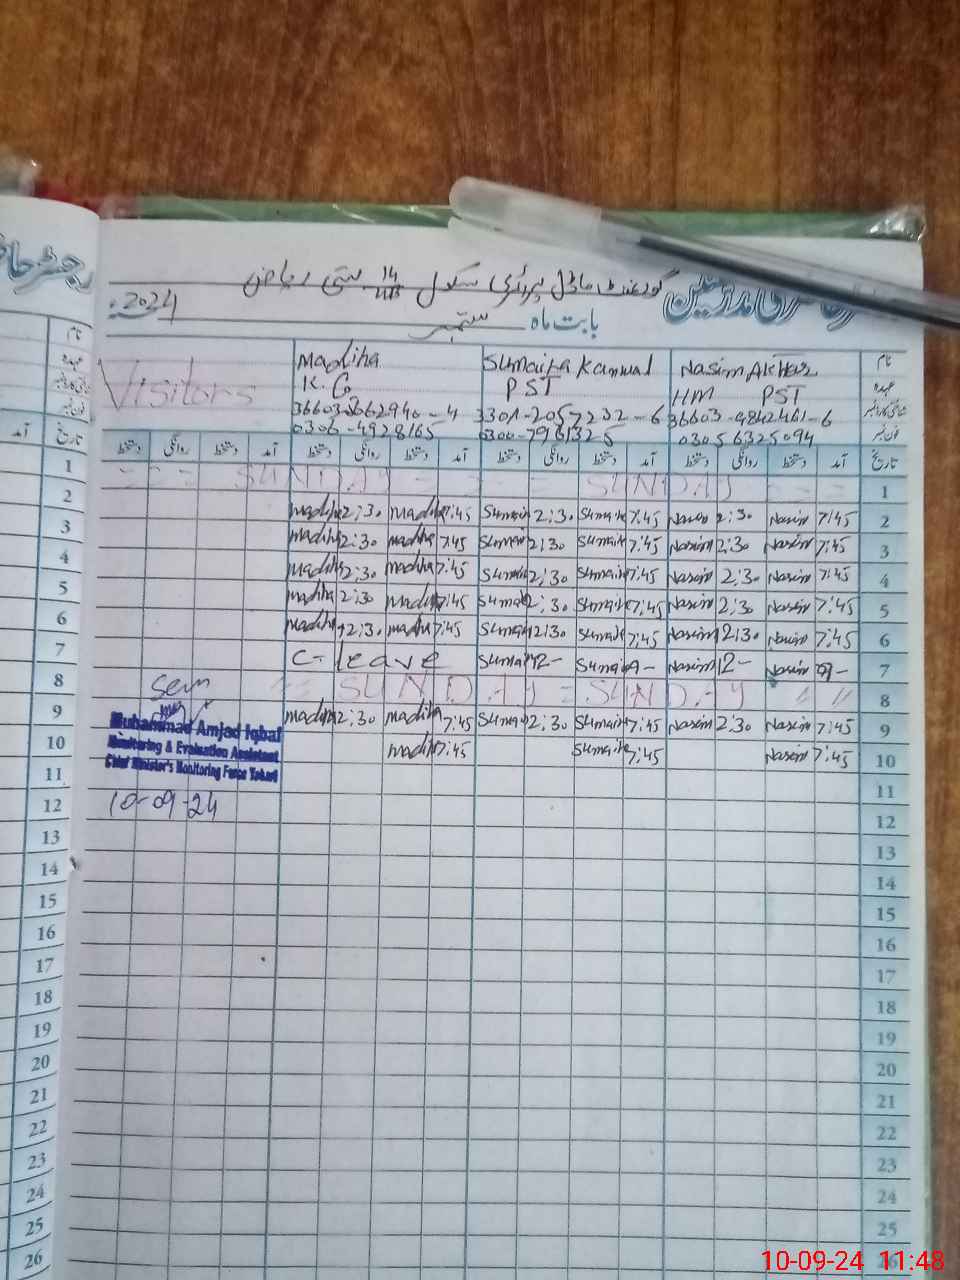 رجسٹر حا
گورنمنٹ ماڈل پرائمری سکول 14 بستی ریاض
بابت ماہ ستمبر 2024
Visitors Madiha Sumaira Kanwal Nasim Akhtar نام
K.G PST HM PST عہدہ
0306-4928165 03056325094 فون نمبر
دستخط روانگی دستخط آمد دستخط روانگی دستخط آمد دستخط روانگی دستخط آمد دستخط روانگی دستخط آمد تاریخ
1 = = = SUNDAY = = = SUNDAY = = = 1
2 madiha 2:30 madiha 7:45 Sumaira 2:30 Sumaira 7:45 Nasim 2:30 Nasim 7:45 2
3 madiha 2:30 madiha 7:45 Sumaira 2:30 Sumaira 7:45 Nasim 2:30 Nasim 7:45 3
4 madiha 2:30 madiha 7:45 Sumaira 2:30 Sumaira 7:45 Nasim 2:30 Nasim 7:45 4
5 madiha 2:30 madiha 7:45 Sumaira 2:30 Sumaira 7:45 Nasim 2:30 Nasim 7:45 5
6 madiha 2:30 madiha 7:45 Sumaira 2:30 Sumaira 7:45 Nasim 2:30 Nasim 7:45 6
7 C-leave Sumaira 12- Sumaira 9- Nasim 12- Nasim 9- 7
8 Seen = SUNDAY = SUNDAY " " 8
9 madiha 2:30 madiha 7:45 Sumaira 2:30 Sumaira 7:45 Nasim 2:30 Nasim 7:45 9
Muhammad Amjad Iqbal
10 madiha 7:45 Sumaira 7:45 Nasim 7:45 10
Monitoring & Evaluation Assistant
Chief Minister's Monitoring Force
11 11
10-09-24
12 12
13 13
14 14
15 15
16 16
17 17
18 18
19 19
20 20
21 21
22 22
23 23
24 24
25 25
26 26
10-09-24 11:48